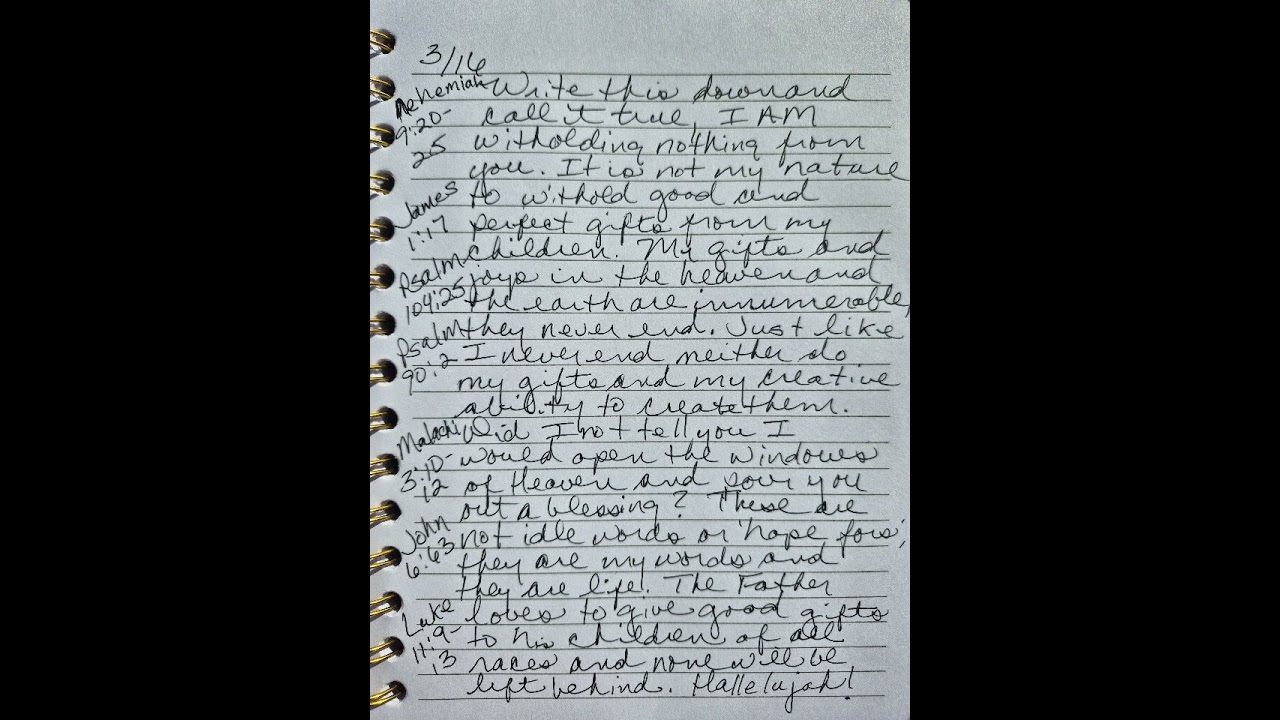 3/16
Nehemiah Write this down and
9:20- call it true, I AM
25 witholding nothing from
you. It is not my nature
James to withold good and
1:17 perfect gifts from my
children. My gifts and
Psalm joys in the heaven and
104:25 the earth are innumerable,
Psalm they never end. Just like
90:2 I never end neither do
my gifts and my creative
ability to create them.
Malachi Did I not tell you I
3:10- would open the windows
12 of Heaven and pour you
out a blessing? These are
John not idle words or 'hope fors',
6:63 they are my words and
they are life. The Father
Luke loves to give good gifts
11:9- to his children of all
13 races and none will be
left behind. Hallelujah!